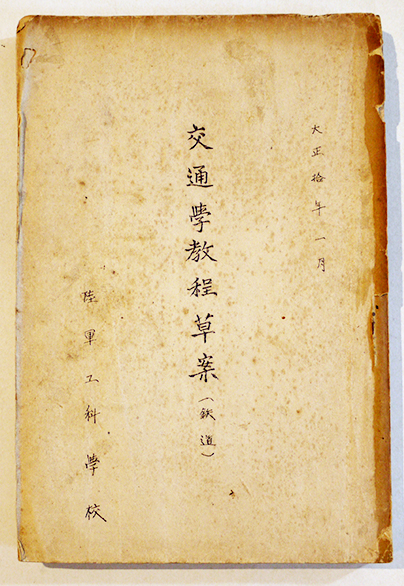 大正拾年一月
交通學教程草案(鉄道)
陸軍工科學校